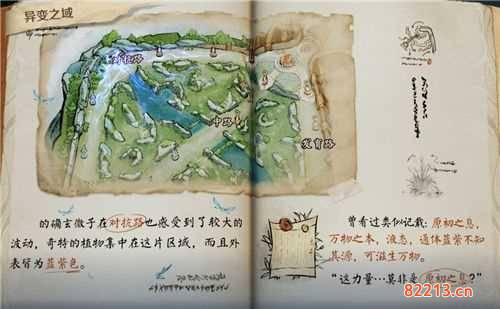 异变之域
对抗路
中路
发育路
的确玄微子在对抗路也感受到了较大的
波动，奇特的植物集中在这片区域，而且外
表皆为蓝紫色。
曾看过类似记载：原初之息，
万物之本，液态，通体蓝紫不知
其源，可滋生万物。
“这力量…莫非是原初之息？”
82213.cn